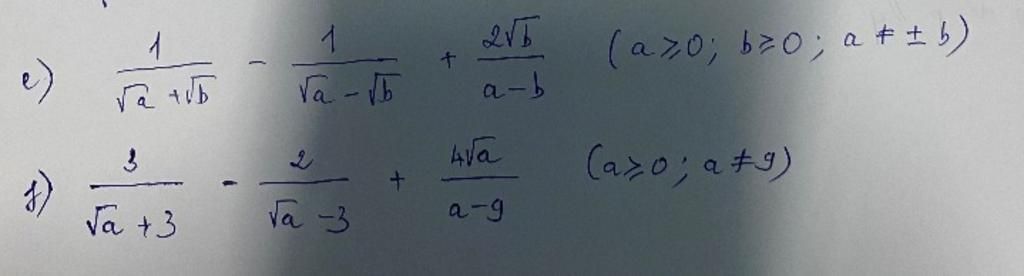 e) \frac{1}{\sqrt{a}+\sqrt{b}} - \frac{1}{\sqrt{a}-\sqrt{b}} + \frac{2\sqrt{b}}{a-b} (a⩾0; b⩾0; a ≠ ± b)
f) \frac{3}{\sqrt{a}+3} - \frac{2}{\sqrt{a}-3} + \frac{4\sqrt{a}}{a-9} (a⩾0; a≠9)